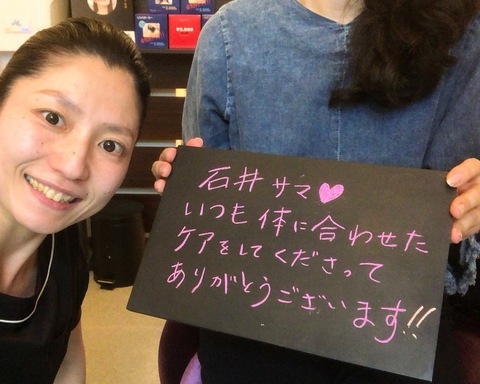 石井サマ♡
いつも体に合わせた
ケアをしてくださって
ありがとうございます!!